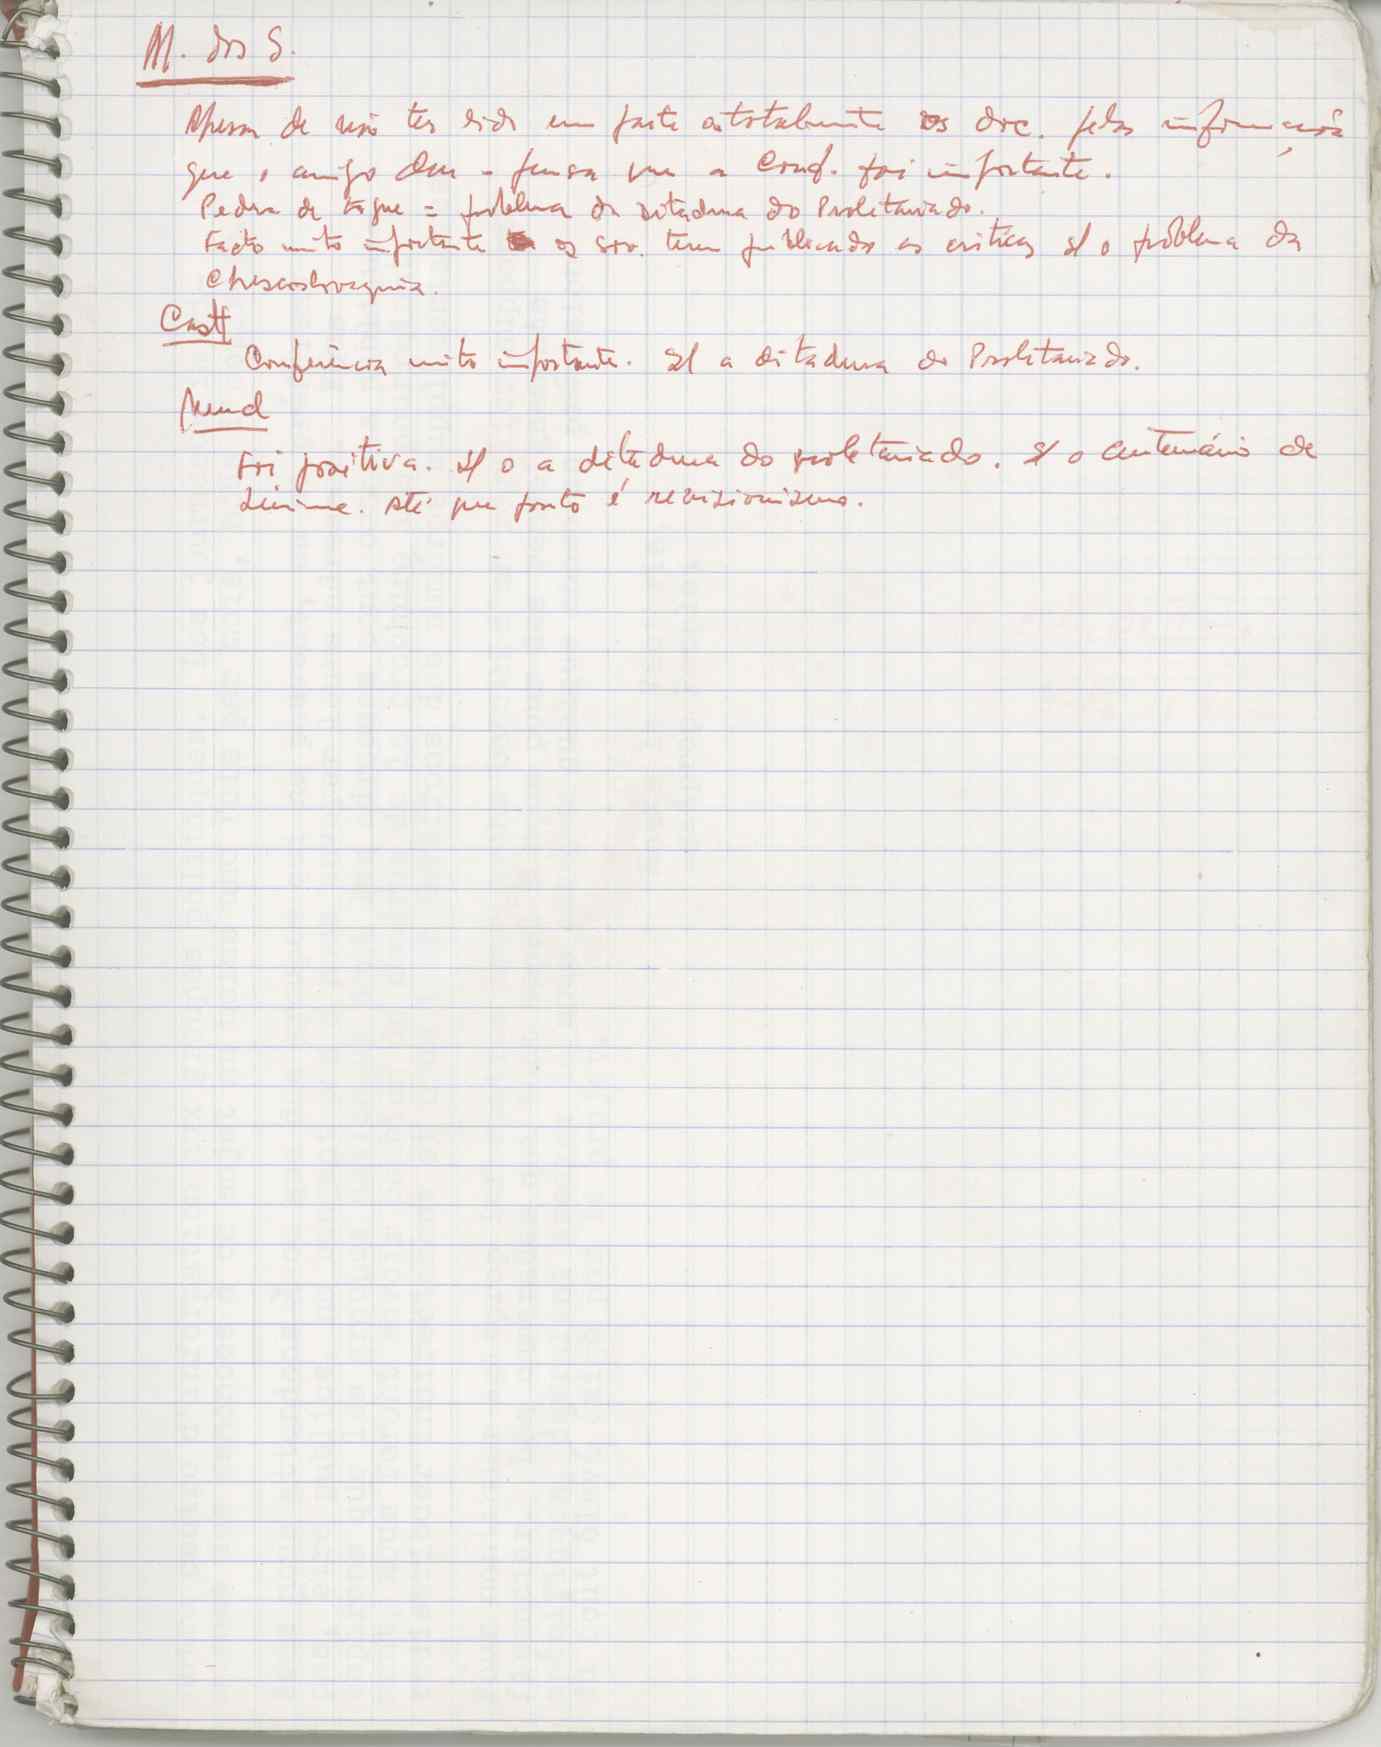 M. dos S.
Apesar de não ter lido em parte a totalmente os doc. pelas informações
que o amigo deu - pensa que a Conf. foi importante.
Pedra de toque = problema da ditadura do Proletariado.
Facto muito importante os sov. terem publicado as críticas s/ o problema da
Checoslovaquia.
Conferência muito importante. s/ a ditadura do Proletariado.
Foi positiva. s/ o a ditadura do proletariado. s/ o centenário de
Lénine. Até que ponto é revisionismo.